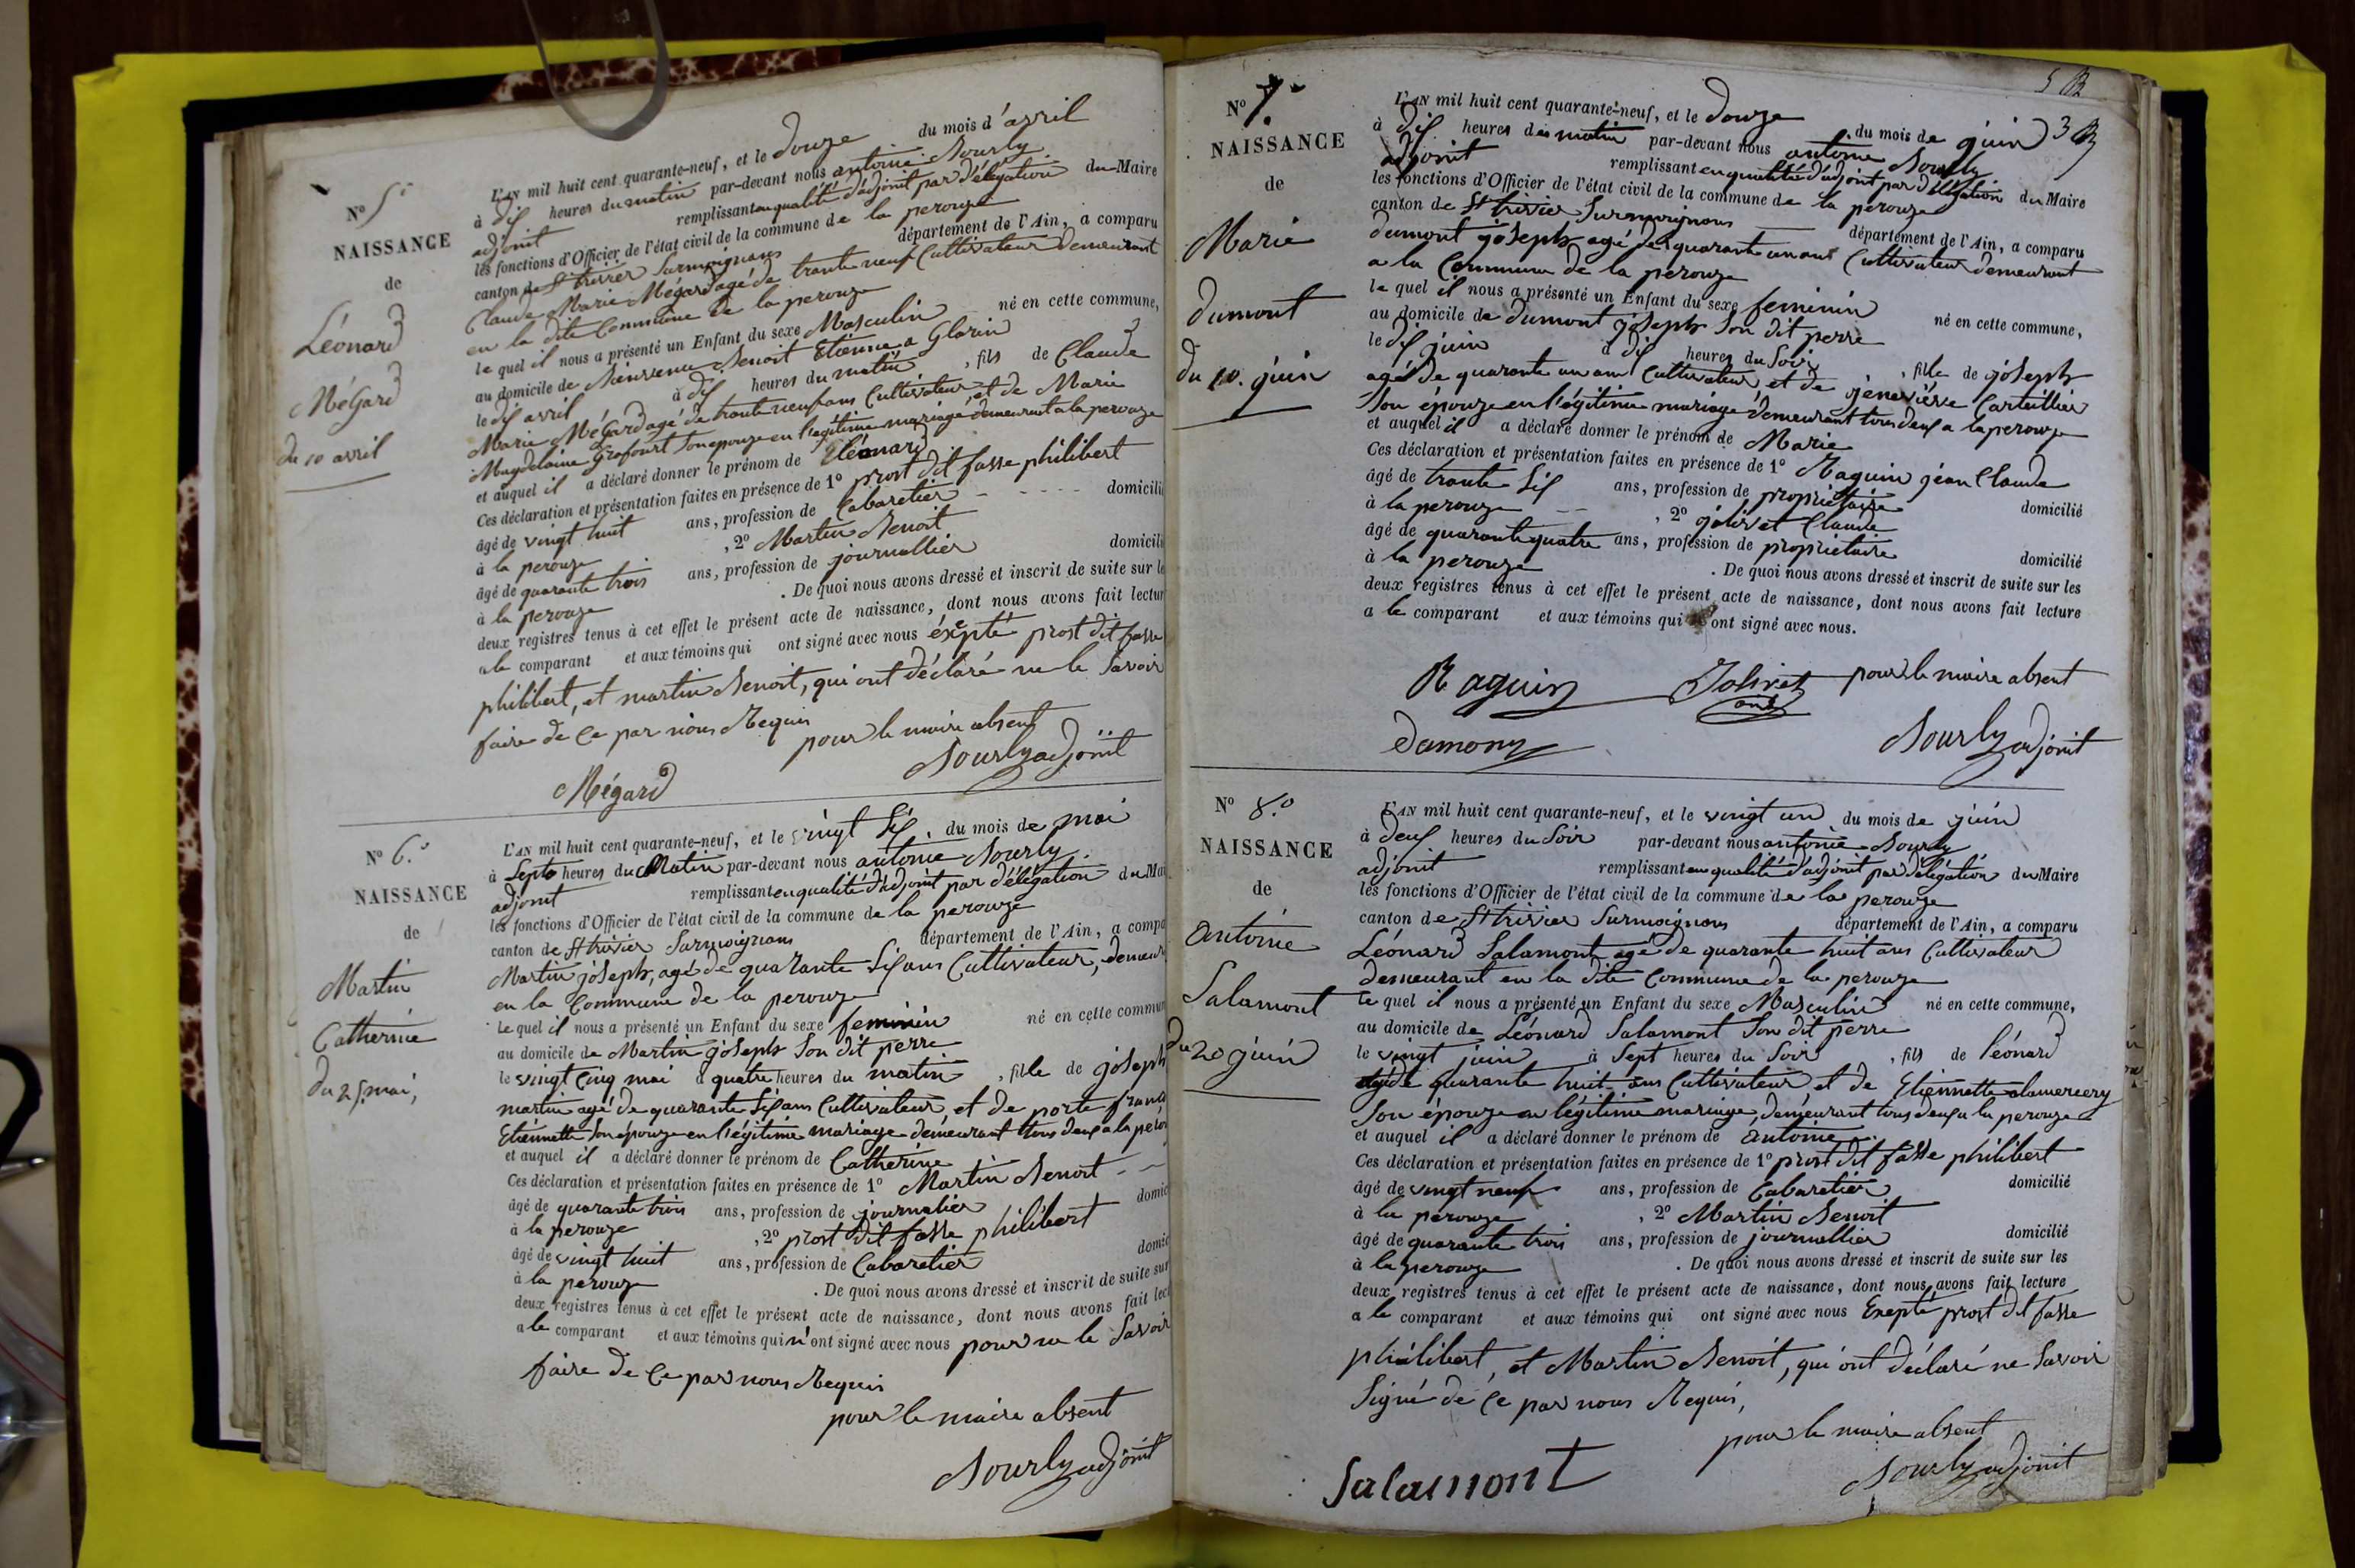 N° 5°
NAISSANCE
de
Léonard
Mégard
du 10 avril
L'AN mil huit cent quarante-neuf, et le douze du mois d'avril
à dix heures du matin par-devant nous antoine Bourly
adjoint remplissant en qualité d'adjoint par délégation du Maire
les fonctions d'Officier de l'état civil de la commune de la perouze
canton de St trivier Surmoignans département de l'Ain, a comparu
Claude Marie Mégard agé de trante neuf Cultivateur demeurant
en la dite Commune de la perouze
le quel il nous a présenté un Enfant du sexe Masculin né en cette commune,
au domicile de Benoit Etienne a Glarin
le dix avril à dix heures du matin , fils de Claude
Marie Mégard agé de trante neuf ans Cultivateur et de Marie
Magdelaine Grofourt son épouze en l'égitime mariage demeurant a la perouze
et auquel il a déclaré donner le prénom de Léonard
Ces déclaration et présentation faites en présence de 1° prost dit fasse philibert
âgé de vingt huit ans, profession de Cabaretier domicilié
à la perouze , 2° Martin Benoit
âgé de quarante trois ans, profession de journallier domicili
à la perouze . De quoi nous avons dressé et inscrit de suite sur le
deux registres tenus à cet effet le présent acte de naissance, dont nous avons fait lectur
a le comparant et aux témoins qui ont signé avec nous éxepté prost dit fasse
philibert, et martin Benoit, qui ont déclaré ne le Savoir
faire de Ce par nous Requis
pour le maire absent
Bourly adjoint
Mégard
N° 6°
NAISSANCE
de
Martin
Catherine
du 25 mai,
L'AN mil huit cent quarante-neuf, et le vingt Six du mois de mai
à Septe heures du Matin par-devant nous antoine Bourly
adjoint remplissant en qualité d'adjoint par délégation du Mai
les fonctions d'Officier de l'état civil de la commune de la perouze
canton de St trivier Surmoignans département de l'Ain, a compa
Martin joseph, agé de quarante Six ans Cultivateur, demeur
en la Commune de la perouze
le quel il nous a présenté un Enfant du sexe feminin né en cette commun
au domicile de Martin joseph Son dit perre
le vingt Cinq mai à quatre heures du matin , fille de joseph
martin agé de quarante Six ans Cultivateur et de porte franc
Etiennette Son épouze en l'égitime mariage demeurant tous deux a la pero
et auquel il a déclaré donner le prénom de Catherine
Ces déclaration et présentation faites en présence de 1° Martin Benoit
âgé de quarante trois ans, profession de journalier domic
à la perouze , 2° prost dit fasse philibert
âgé de vingt huit ans, profession de Cabaretier domic
à la perouze . De quoi nous avons dressé et inscrit de suite sur
deux registres tenus à cet effet le présent acte de naissance, dont nous avons fait lect
a le comparant et aux témoins qui n'ont signé avec nous pour ne le Savoir
faire de Ce par nous Requis
pour le maire absent
Bourly adjoint
N° 7°
NAISSANCE
de
Marie
dumont
du 10. juin
L'AN mil huit cent quarante-neuf, et le douze du mois de juin
à dix heures du matin par-devant nous antoine Bourly
adjoint remplissant en qualité d'adjoint par délégation du Maire
les fonctions d'Officier de l'état civil de la commune de la perouze
canton de St trivier Surmoignans département de l'Ain, a comparu
dumont joseph agé de quarante un ans Cultivateur demeurant
a la Commune de la perouze
le quel il nous a présenté un Enfant du sexe feminin né en cette commune,
au domicile de dumont joseph Son dit perre
le dix juin à dix heures du Soir , fille de joseph
agé de quarante un ans Cultivateur et de jeneviève Carteillier
Son épouze en l'égitime mariage demeurant tous deux a la perouze
et auquel il a déclaré donner le prénom de Marie
Ces déclaration et présentation faites en présence de 1° Raquin jean Claude
âgé de trante Six ans, profession de propriétaire domicilié
à la perouze , 2° jolivet Claude
âgé de quarante quatre ans, profession de propriétaire domicilié
à la perouze . De quoi nous avons dressé et inscrit de suite sur les
deux registres tenus à cet effet le présent acte de naissance, dont nous avons fait lecture
a le comparant et aux témoins qui ont signé avec nous.
Raquin Jolivet pour le maire absent
Bourly adjoint
N° 8°
NAISSANCE
de
antoine
Salamont
du 20 juin
L'AN mil huit cent quarante-neuf, et le vingt un du mois de juin
à deux heures du Soir par-devant nous antoine Bourly
adjoint remplissant en qualité d'adjoint par délégation du Maire
les fonctions d'Officier de l'état civil de la commune de la perouze
canton de St trivier Surmoignans département de l'Ain, a comparu
Léonard Salamont agé de quarante huit ans Cultivateur
demeurant en la dite Commune de la perouze
le quel il nous a présenté un Enfant du sexe Masculin né en cette commune,
au domicile de Léonard Salamont Son dit perre
le vingt juin à Sept heures du Soir , fils de léonard
agé de quarante huit ans Cultivateur et de Etiennette alamercery
Son épouze en légitime mariage, demeurant tous deux a la perouze
et auquel il a déclaré donner le prénom de antoine
Ces déclaration et présentation faites en présence de 1° prost dit fasse philibert
âgé de vingt neuf ans, profession de Cabaretier domicilié
à la perouze , 2° Martin Benoit
âgé de quarante trois ans, profession de journallier domicilié
à la perouze . De quoi nous avons dressé et inscrit de suite sur les
deux registres tenus à cet effet le présent acte de naissance, dont nous avons fait lecture
a le comparant et aux témoins qui ont signé avec nous Exepté prost dit fasse
philibert, et Martin Benoit, qui ont déclaré ne Savoir
Signé de Ce par nous Requis,
pour le maire absent
Bourly adjoint
Salamont